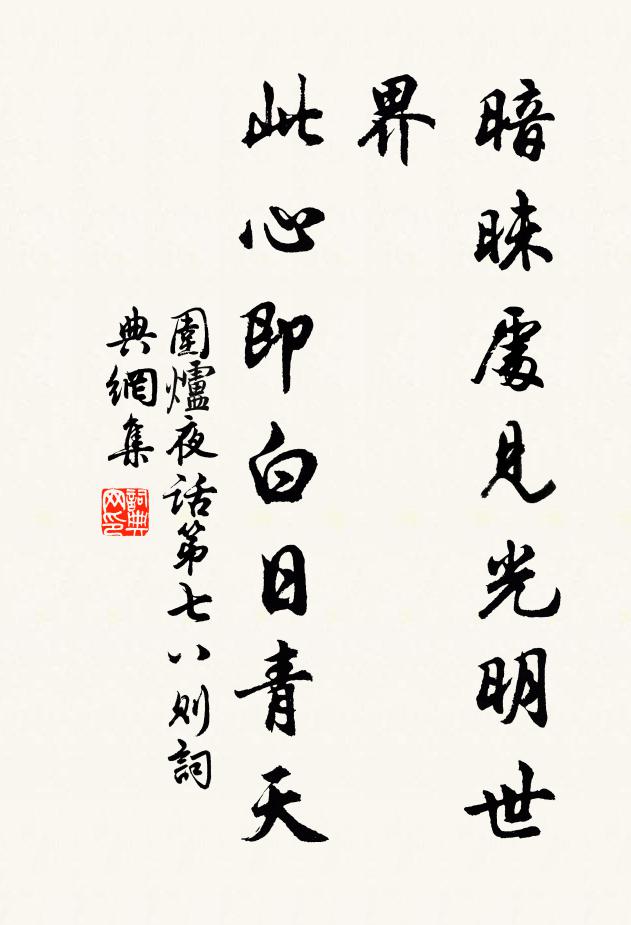 暗昧處見光明世
界
此心即白日青天
圍爐夜話第七八則詞
典網集
詞典
网印